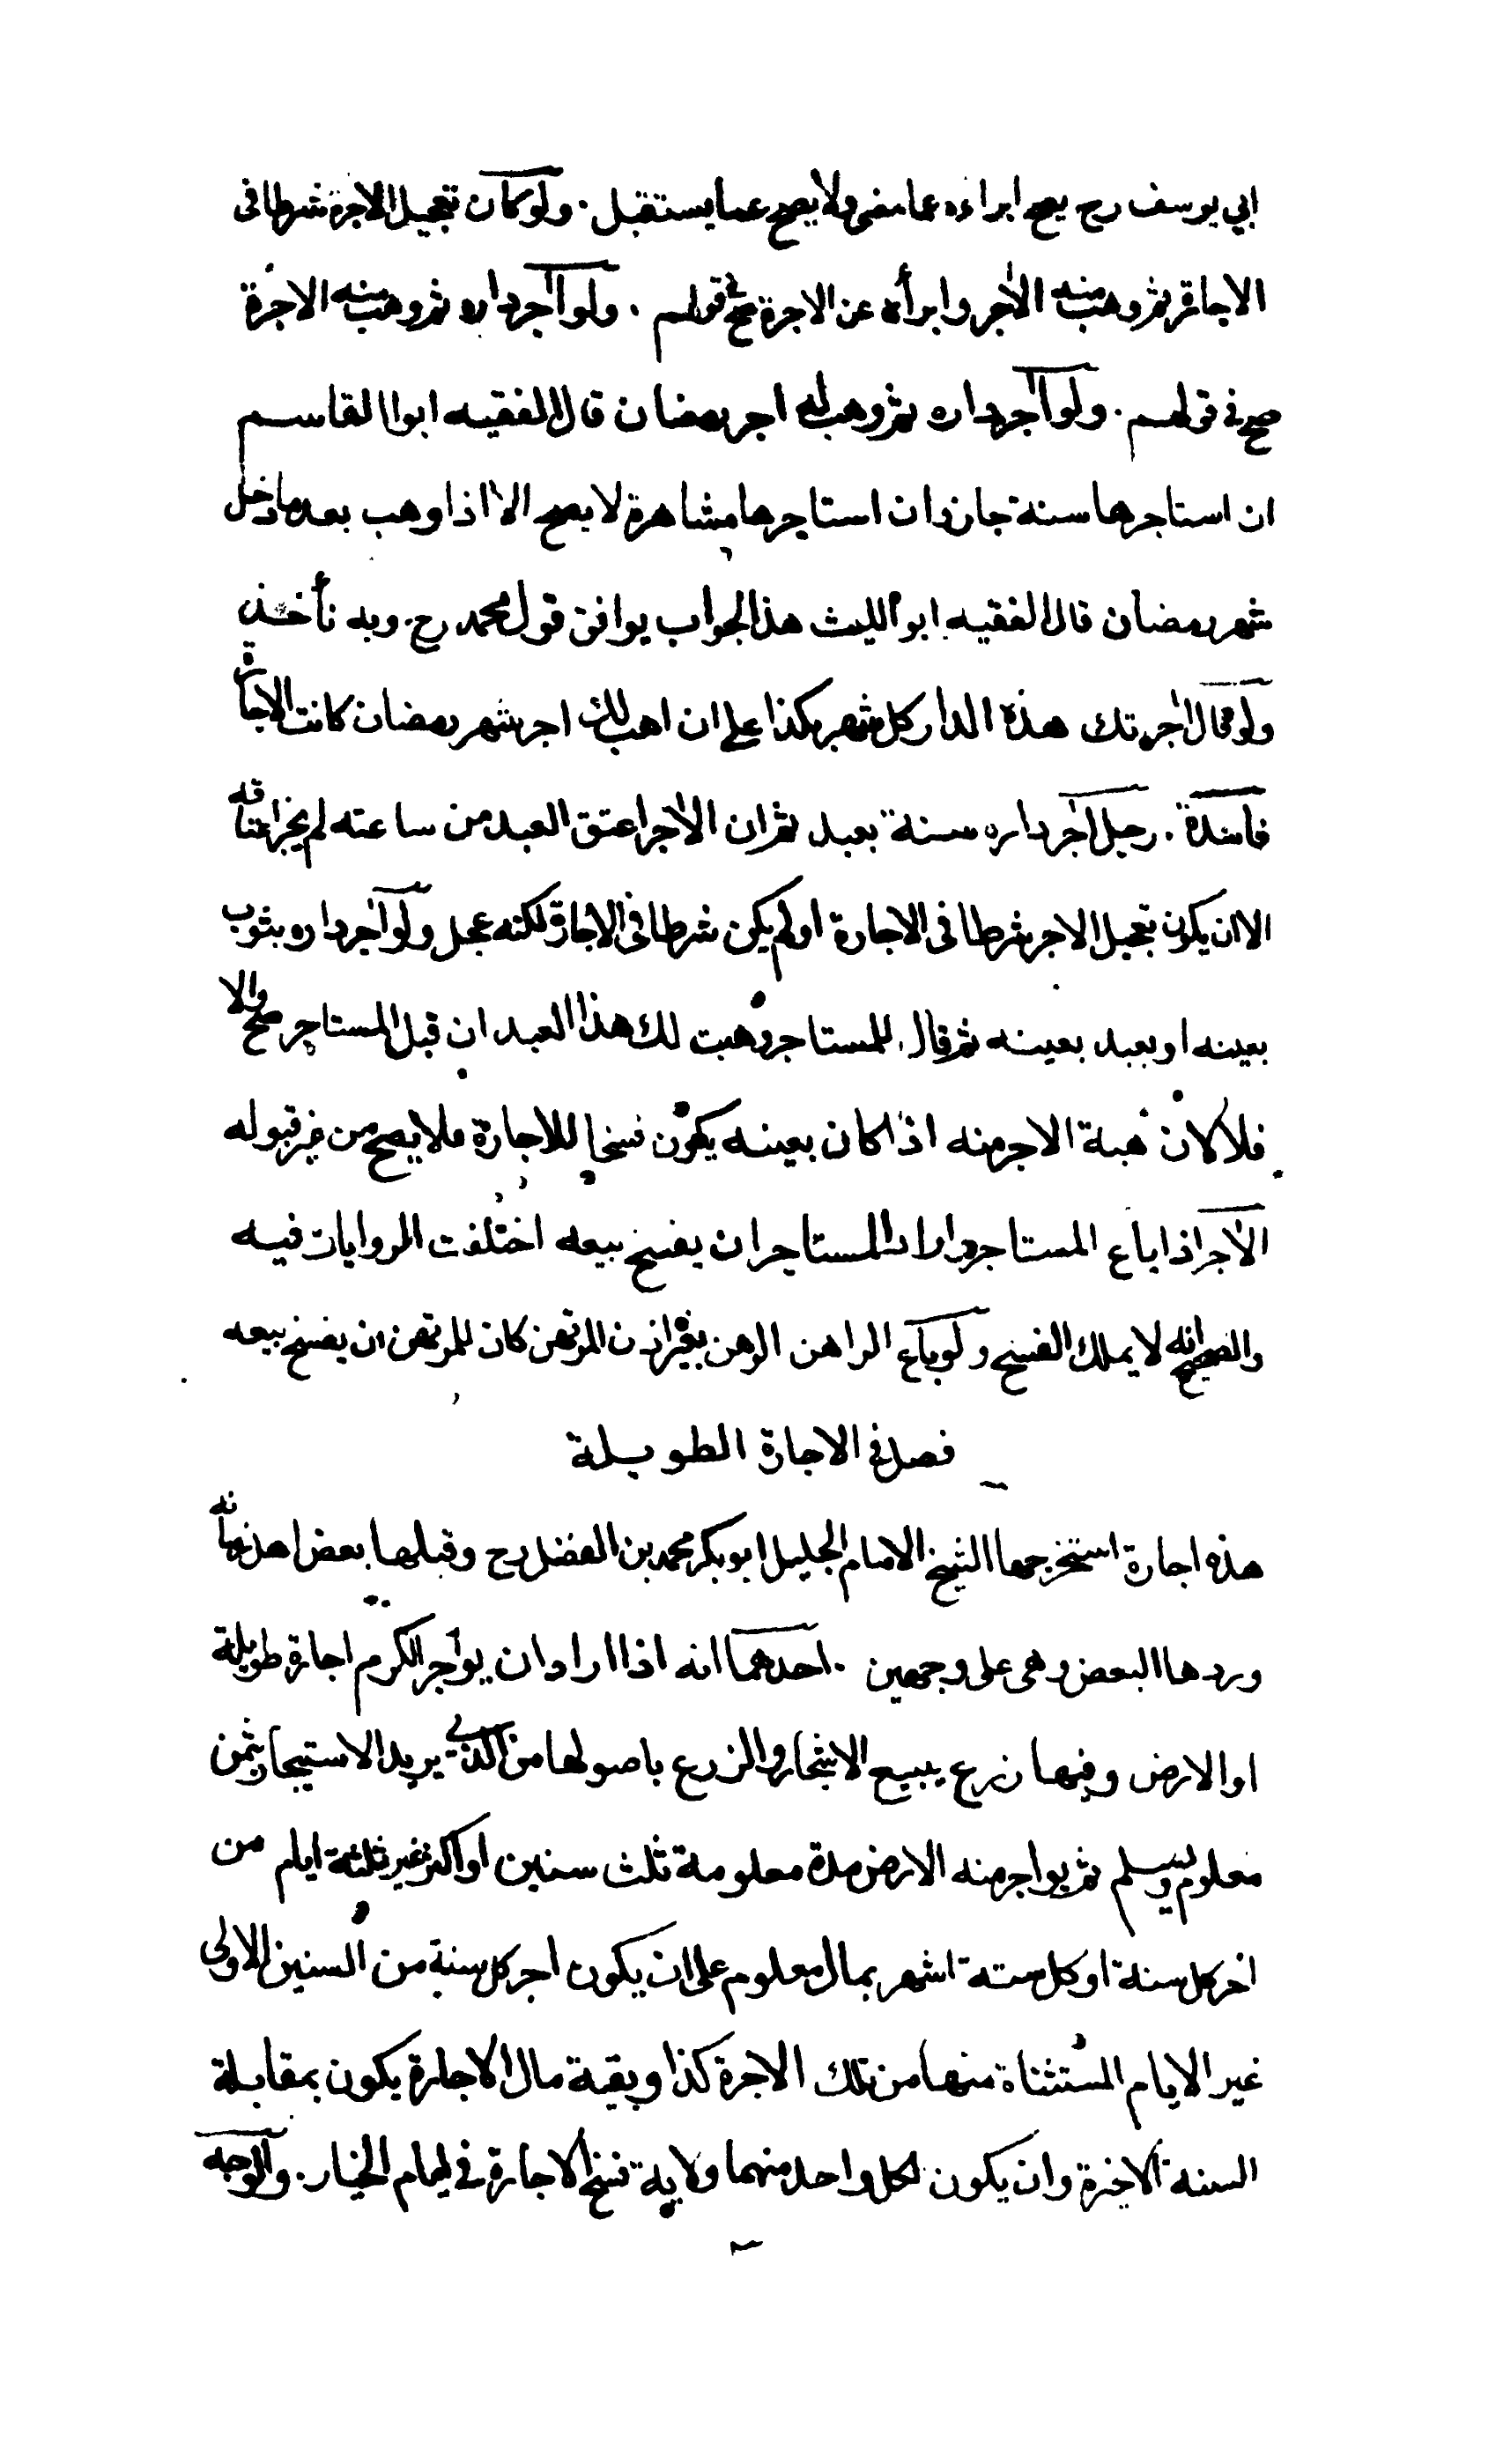 ابي يوسف رح يصح ابراءه عما مضى ولا يصح عما يستقبل . ولو كان تعجيل الاجرة شرطا في
الاجارة ثم وهب منه الآجر وابرأه عن الاجرة صح في قولهم . ولو آجر داره ثم وهب منه الاجرة
صح في قولهم . ولو آجر داره ثم وهب له اجر رمضان قال الفقيه ابو القاسم
ان استاجرها سنة جاز وان استاجرها مشاهرة لا يصح الا اذا وهب بعد ما دخل
شهر رمضان قال الفقيه ابو الليث هذا الجواب يوافق قول محمد رح . وبه نأخذ
ولو قال آجرتك هذه الدار كل شهر بكذا على ان اهب لك اجر شهر رمضان كانت الاجارة
فاسدة . رجل آجر داره سنة بعبد ثم ان الآجر اعتق العبد من ساعته لم يجز اعتاقه
الا ان يكون تعجيل الاجر شرطا في الاجارة او لم يكن شرطا في الاجارة لكنه عجل ولو آجر داره بثوب
بعينه او بعبد بعينه ثم قال للمستاجر وهبت لك هذا العبد ان قبل المستاجر صح والا
فلا لان هبة الاجر منه اذا كان بعينه يكون فسخا للاجارة فلا يصح من غير قبوله
الآجر اذا باع المستاجر واراد المستاجر ان يفسخ بيعه اختلفت الروايات فيه
والصحيح انه لا يملك الفسخ ولو باع الراهن الرهن بغير اذن المرتهن كان للمرتهن ان يفسخ بيعه
فصل في الاجارة الطويلة
هذه اجارة استخرجها الشيخ الامام الجليل ابو بكر محمد بن الفضل رح وقبلها بعض اهل زمانه
وردها البعض وهى على وجهين . احدهما انه اذا اراد ان يواجر الكرم اجارة طويلة
او الارض وفيها زرع يبيع الاشجار والزرع باصولها من الذي يريد الاستيجار بثمن
معلوم ويسلم ثم يواجر منه الارض مدة معلومة ثلث سنين او اكثر غير ثلثة ايام من
اخر كل سنة او كل ستة اشهر بمال معلوم على ان يكون اجر كل سنة من السنين الاولى
غير الايام المستثناة منها من تلك الاجرة كذا وبقية مال الاجارة يكون بمقابلة
السنة الاخيرة وان يكون لكل واحد منهما ولاية فسخ الاجارة في ايام الخيار . والوجه